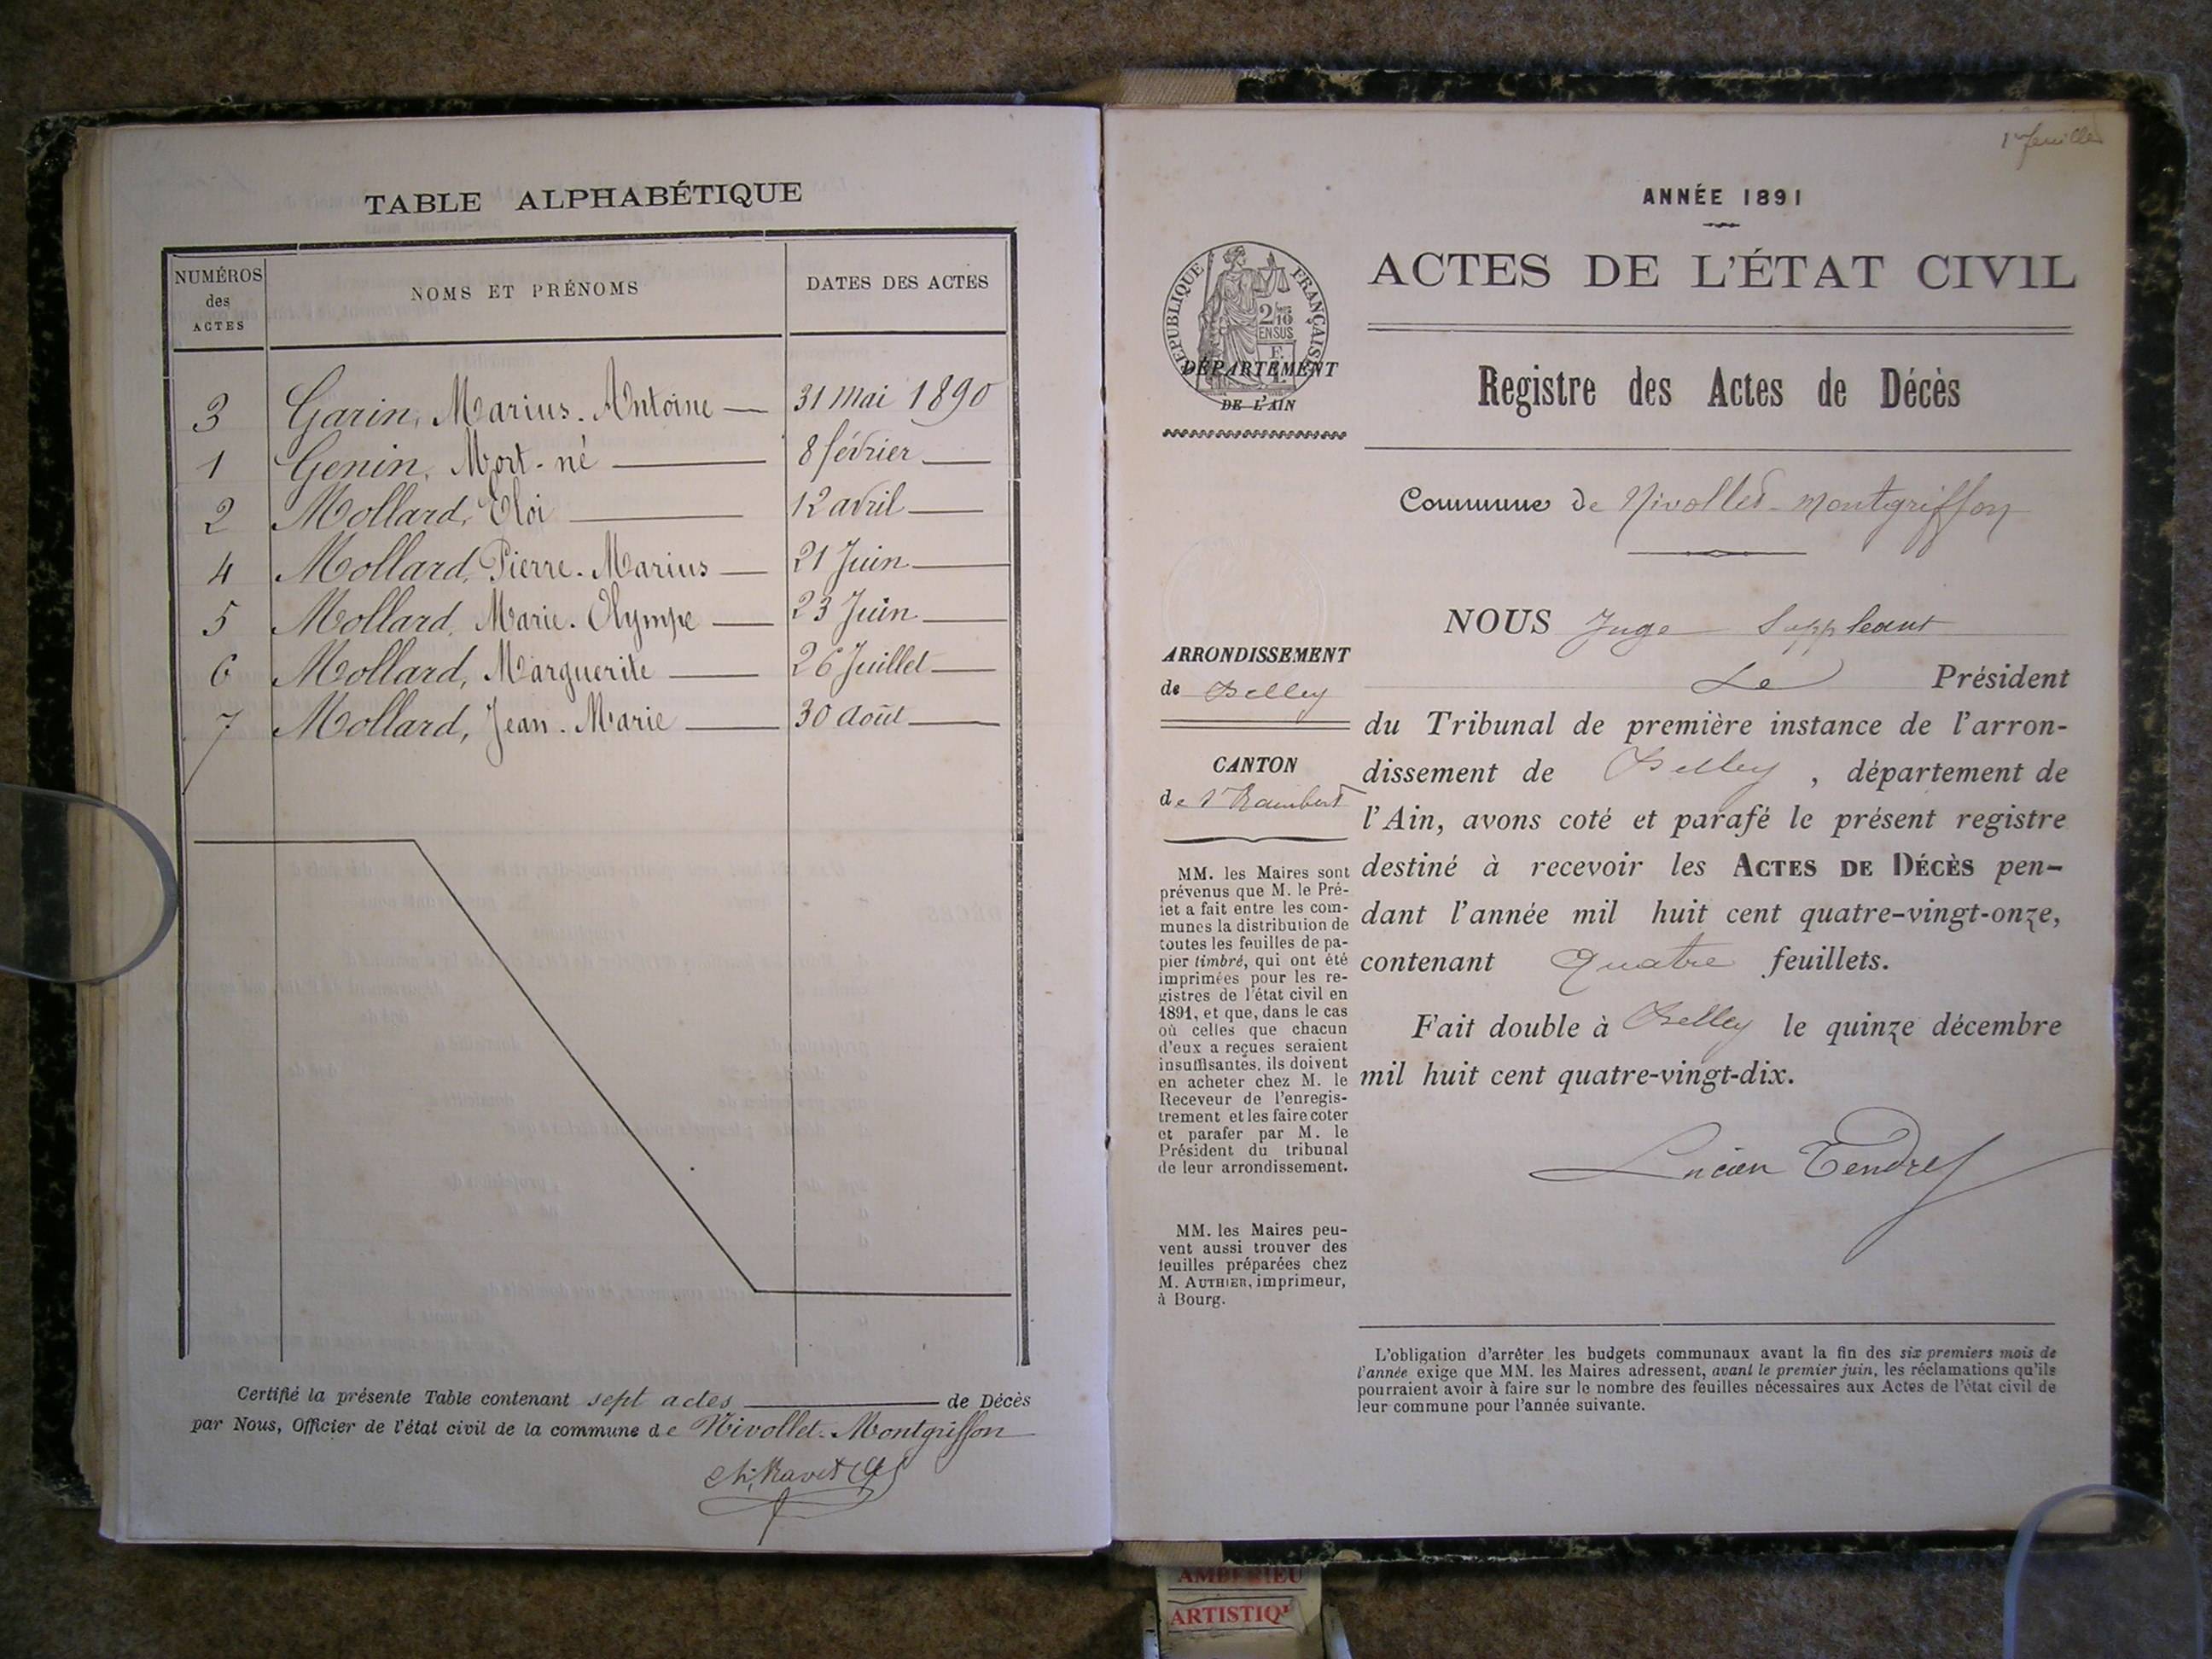 TABLE ALPHABÉTIQUE
NUMÉROS des ACTES
NOMS ET PRÉNOMS
DATES DES ACTES
3 Garin, Marius-Antoine — 31 Mai 1890
1 Genin, Mort-né — 8 février —
2 Mollard, Eloi — 12 avril —
4 Mollard, Pierre-Marius — 21 Juin —
5 Mollard, Marie-Olympe — 23 Juin —
6 Mollard, Marguerite — 26 Juillet —
7 Mollard, Jean-Marie — 30 Août —
Certifié la présente Table contenant sept actes — de Décès
par Nous, Officier de l'état civil de la commune de Nivollet-Montgriffon
1er feuillet
ANNÉE 1891
ACTES DE L'ÉTAT CIVIL
RÉPUBLIQUE FRANÇAISE
EN SUS
DÉPARTEMENT
DE L'AIN
Registre des Actes de Décès
Commune de Nivollet-Montgriffon
NOUS Juge Suppléant
Le Président
du Tribunal de première instance de l'arron-
dissement de Belley, département de
l'Ain, avons coté et parafé le présent registre
destiné à recevoir les ACTES DE DÉCÈS pen-
dant l'année mil huit cent quatre-vingt-onze,
contenant Quatre feuillets.
Fait double à Belley le quinze décembre
mil huit cent quatre-vingt-dix.
Lucien Tendret
ARRONDISSEMENT
de Belley
CANTON
de St Rambert
MM. les Maires sont
prévenus que M. le Pré-
fet a fait entre les com-
munes la distribution de
toutes les feuilles de pa-
pier timbré, qui ont été
imprimées pour les re-
gistres de l'état civil en
1891, et que, dans le cas
où celles que chacun
d'eux a reçues seraient
insuffisantes, ils doivent
en acheter chez M. le
Receveur de l'enregis-
trement et les faire coter
et parafer par M. le
Président du tribunal
de leur arrondissement.
MM. les Maires peu-
vent aussi trouver des
feuilles préparées chez
M. AUTHIER, imprimeur,
à Bourg.
L'obligation d'arrêter les budgets communaux avant la fin des six premiers mois de
l'année exige que MM. les Maires adressent, avant le premier juin, les réclamations qu'ils
pourraient avoir à faire sur le nombre des feuilles nécessaires aux Actes de l'état civil de
leur commune pour l'année suivante.
AMBERIEU
ARTISTIQ